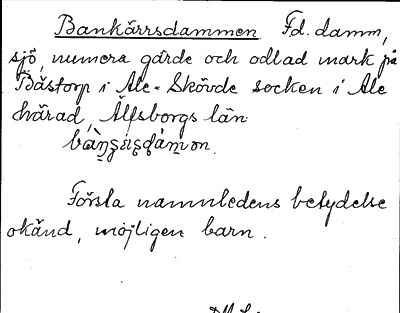 Bankärrsdammen Fd. damm,
sjö, numera gärde och odlad mark på
Båstorp i Ale-Skövde socken i Ale
härad, Älfsborgs län

Första namnledens betydelse
okänd, möjligen barn.